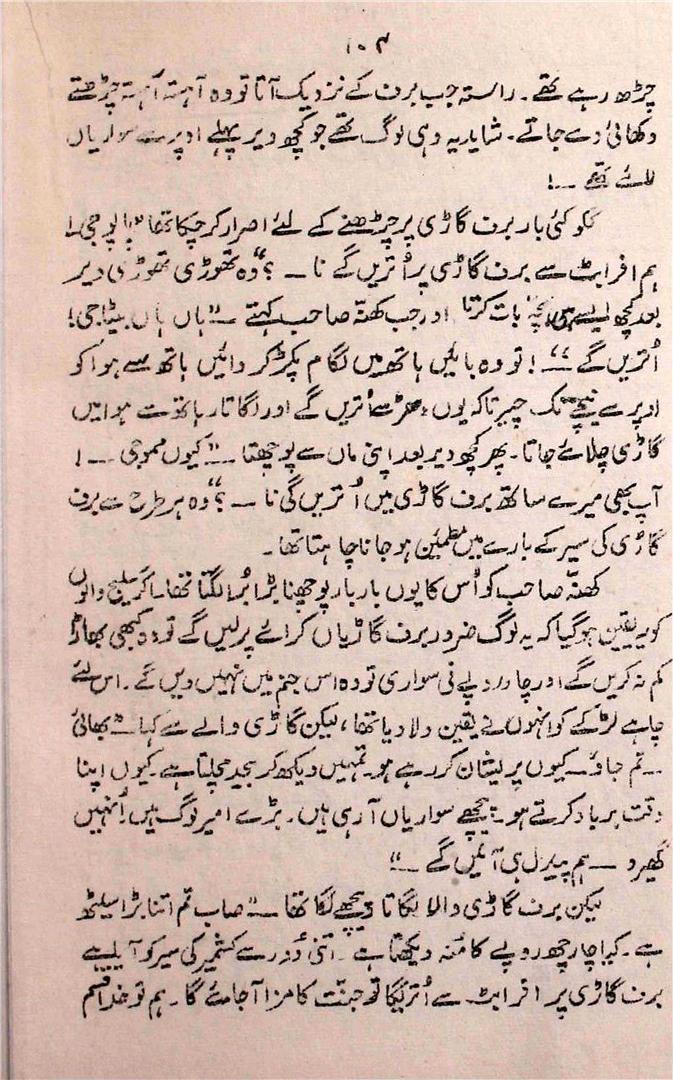 ۱۰۴
چڑھ رہے تھے۔ راستہ جب برف کے نزدیک آتا تو وہ آہستہ آہستہ چڑھتے
دکھائی دے جاتے۔ شاید یہ وہی لوگ تھے جو کچھ دیر پہلے اوپر سے سواریاں
لائے تھے ۔۔!
ککو کئی بار برف گاڑی پر چڑھنے کے لئے اصرار کر چکا تھا ”پاپوجی!
ہم افرابٹ سے برف گاڑی پر اُتریں گے نا ــ ؟“ وہ تھوڑی تھوڑی دیر
بعد کچھ ایسے ہی بات کرتا اور جب کھنّہ صاحب کہتے ــ ”ہاں ہاں بیٹا جی!
اُتریں گے ــ“! تو وہ بائیں ہاتھ میں لگام پکڑ کر دائیں ہاتھ سے ہوا کو
اوپر سے نیچے تک چیرتا کہ یوں سے اُتریں گے اور لگاتار ہاتھ سے ہوا میں
گاڑی چلائے جاتا۔ پھر کچھ دیر بعد اپنی ماں سے پوچھتا ــ ”کیوں ممو جی ــ !
آپ بھی میرے ساتھ برف گاڑی میں اُتریں گی نا ــ ؟“ وہ ہر طرح سے برف
گاڑی کی سیر کے بارے میں مطمئین ہو جانا چاہتا تھا۔
کھنّہ صاحب کو اُس کا یوں بار بار پوچھنا بڑا بُرا لگتا تھا۔ اگر سلیج والوں
کو یہ یقین ہو گیا کہ یہ لوگ ضرور برف گاڑیاں کرائے پر لیں گے تو وہ کبھی بھاڑا
کم نہ کریں گے اور چار روپے فی سواری تو وہ اس جنم میں نہیں دیں گے۔ اس لئے
چاہے لڑکے کو انہوں نے یقین دلا دیا تھا، لیکن گاڑی والے سے کہا ــ ”بھائی
ــ تم جاؤ ــ کیوں پریشان کر رہے ہو۔ تمہیں دیکھ کر بچہ مچلتا ہے۔ کیوں اپنا
وقت برباد کرتے ہو۔ پیچھے سواریاں آ رہی ہیں۔ بڑے امیر لوگ ہیں اُنہیں
گھیرو ــ ہم پیدل ہی آئیں گے ــ“
لیکن برف گاڑی والا لگاتار پیچھے لگا تھا ــ ”صاب تم اتنا بڑا سیٹھ
ہے۔ کیا چار چھ روپے کا مُنہ دیکھتا ہے۔ اتنی دُور سے کشمیر کی سیر کو آیا ہے
برف گاڑی پر افرابٹ سے اُتریگا تو جنّت کا مزا آ جائے گا۔ ہم تو خدا قسم